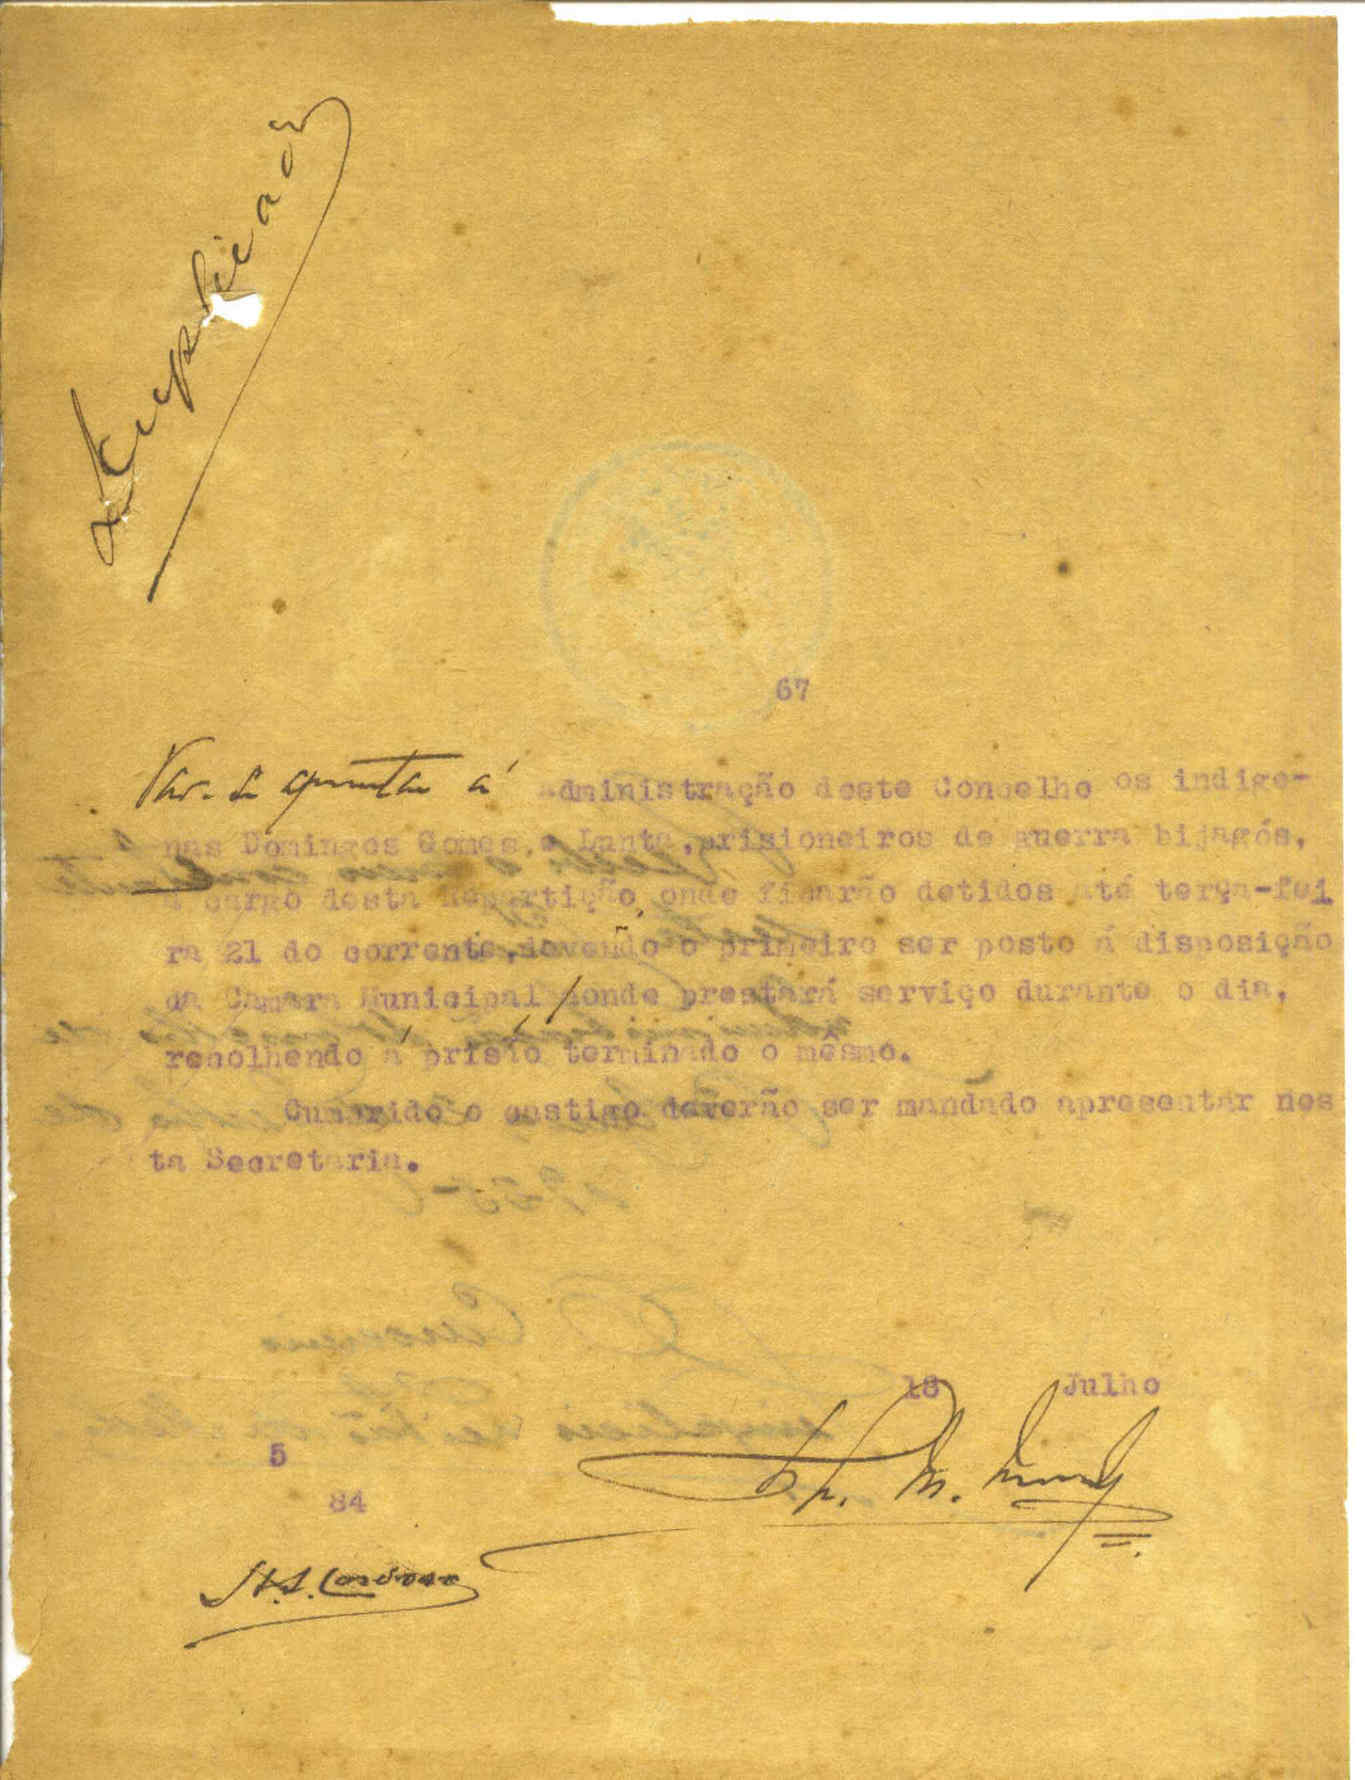 Duplicado
67
Vão-se apresentar á administração deste Concelho os indige-
nas Domingos Gomes, e Lanta, prisioneiros de guerra bijagós,
a cargo desta Repartição, onde ficarão detidos até terça-fei
ra 21 do corrente, devendo o primeiro ser posto á disposição
da Camara Municipal, onde prestará serviço durante o dia,
recolhendo á prisão terminado o mêsmo.
Cumprido o castigo deverão ser mandado apresentar nes
ta Secretaria.
18 Julho
5
84